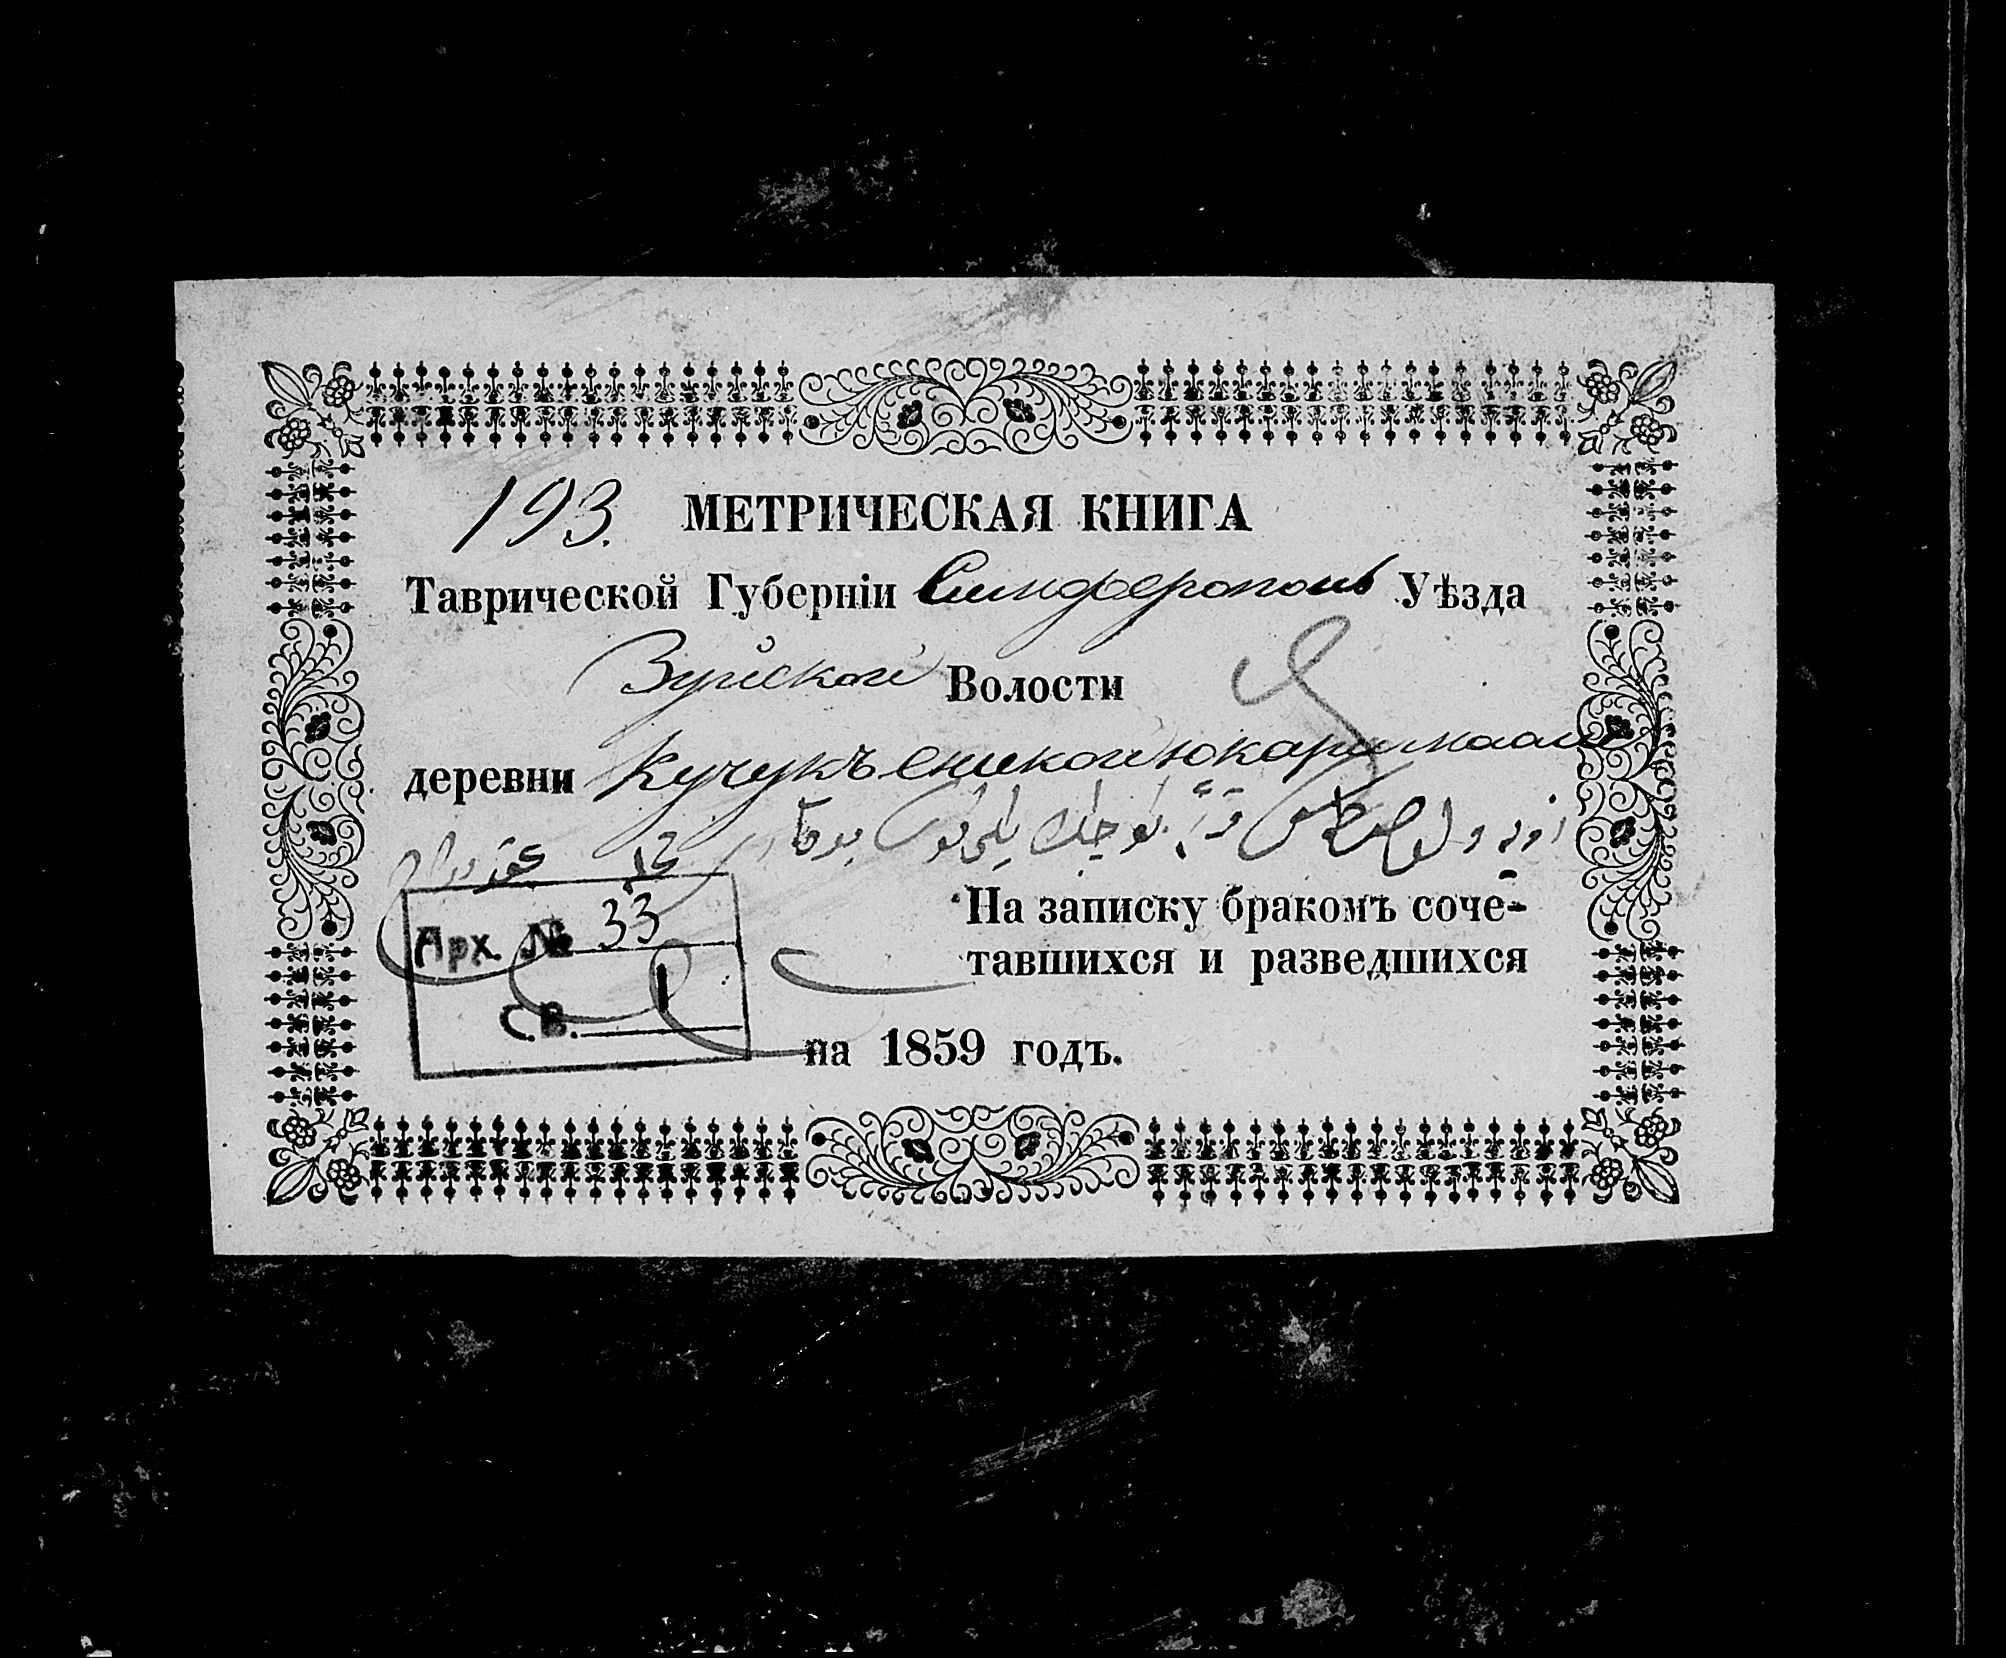 193. МЕТРИЧЕСКАЯ КНИГА
Таврической Губерніи Симферополь Уѣзда
Зуйской Волости
деревни Кучукъ Еникой юкари маале
На записку бракомъ соче-
тавшихся и разведшихся
на 1859 годъ.
Арх. № 33
С.В. 1